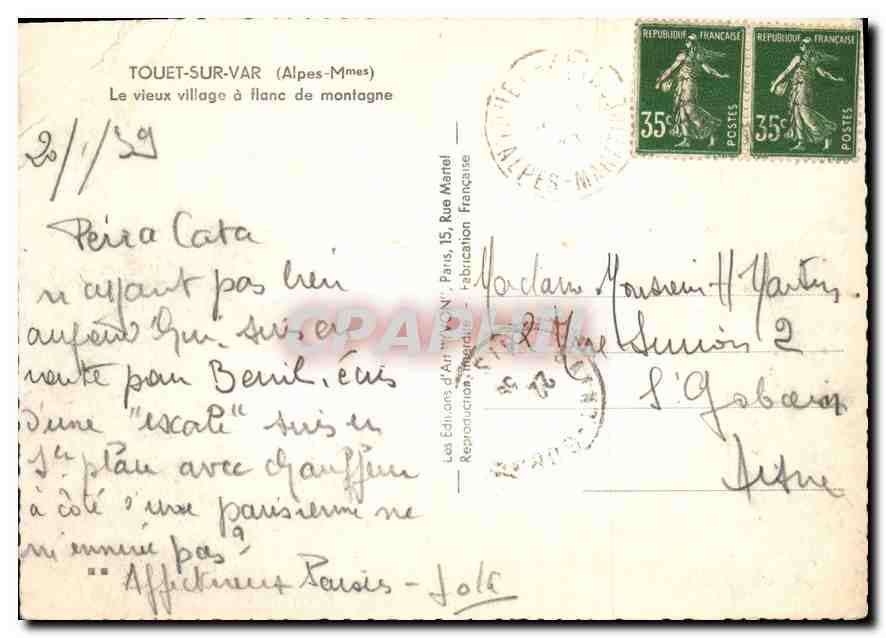 TOUET-SUR-VAR (Alpes-Mmes)
Le vieux village à flanc de montagne
20/1/39
n'ayant pas bien
aujourd'hui, suis en
route pour Beuil, écris
d'une "escale" suis en
1er plan avec chauffeur
à côté d'une parisienne ne
m'ennuie pas?
Affectueux
Les Editions d'Art "YVON", Paris, 15, Rue Martel
Reproduction interdite - Fabrication Française
ALPES-MARITIMES
REPUBLIQUE FRANÇAISE
35c
POSTES
REPUBLIQUE FRANÇAISE
35c
POSTES
Madame Monsieur H Martin
2 2
St Gobain
Aisne
22
CPARAMA